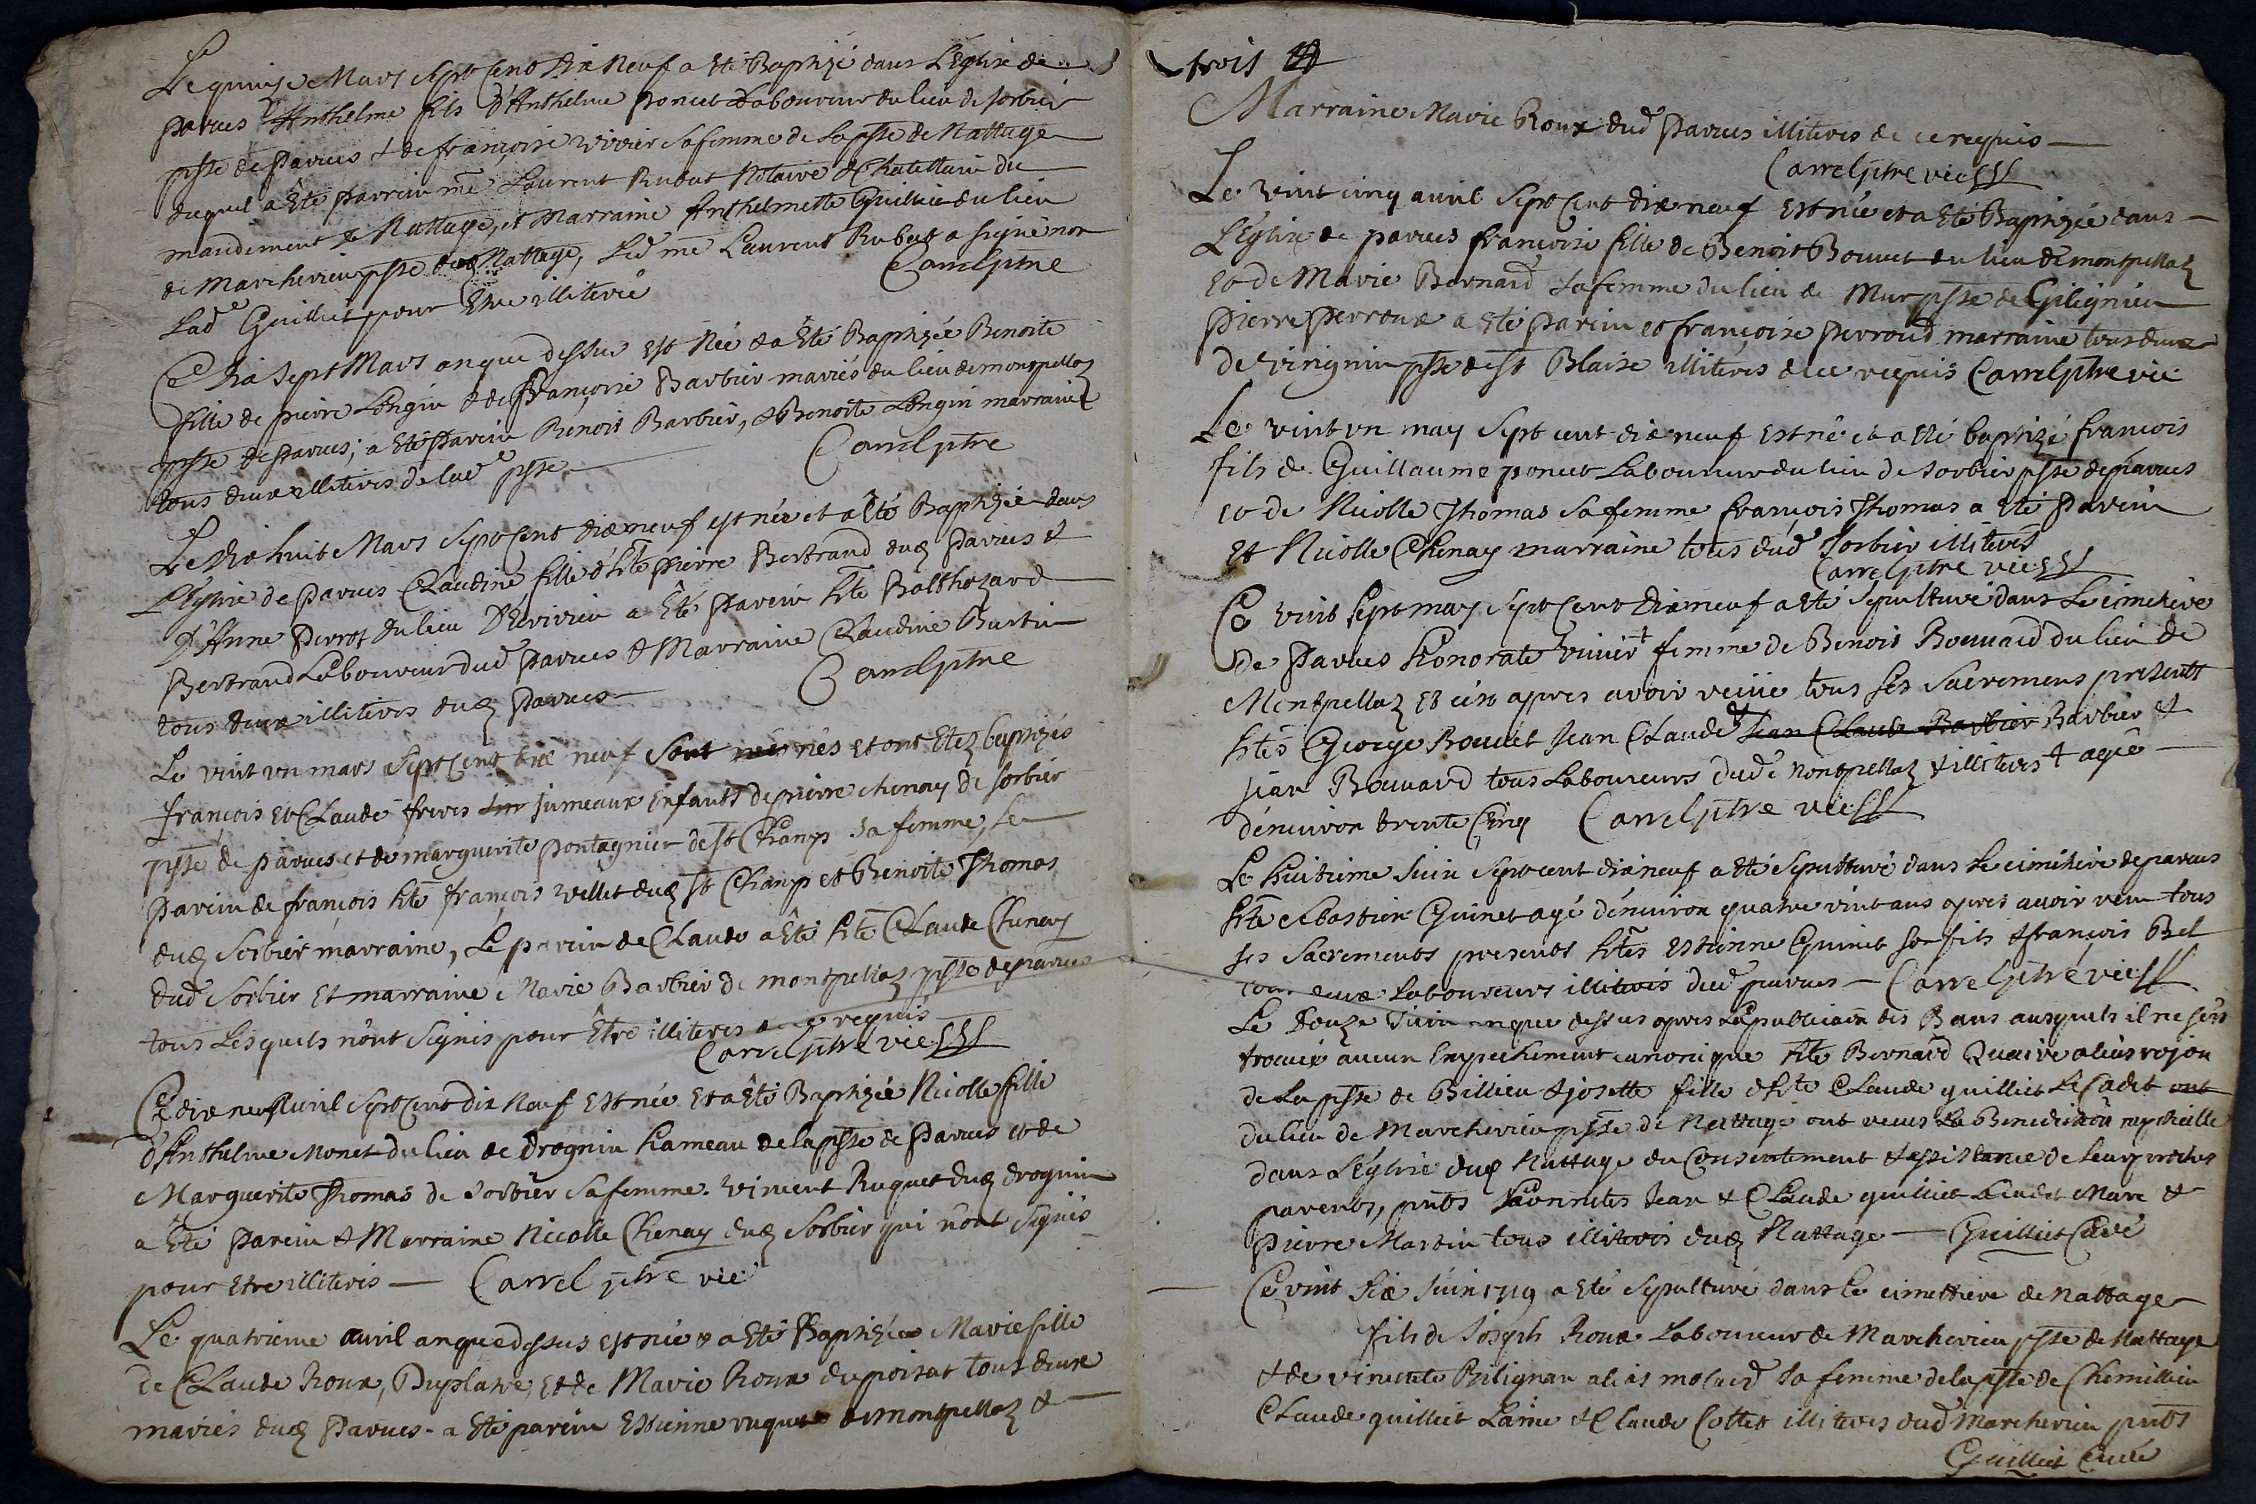 Le quinze Mars Sept Cent Dix Neuf a été Baptizé dans L'Eglise de
parves Anthelme fils d'Anthelme poncet Laboureur du lieu de sorbier
psse de parves & de françoise vivier sa femme de la psse de Nattage
duquel a Eté parrein me Laurent Rubat Notaire & Chatellain du
mandement de Nattage, et Marraine Anthelmette Guilliet du lieu
de Marcherieu psse dud Nattage, Led me Laurent Rubat a signé non
Lad Guilliet pour Etre illiterée Carrel ptre
Ce Dix Sept Mars an que dessus est Née & a Eté Baptizée Benoite
fille de pierre Longin & de françoise Barbier mariés du lieu de montpellaz
psse de parves; a Eté parrein Benoit Barbier, & Benoite Longin marraine
tous deux illiteres de lad psse Carrel ptre
Le Dix huit Mars Sept Cent dix neuf est née et a Eté Baptizée dans
L'Eglise de parves Claudine fille d'hte pierre Bertrand dud parves &
D'Anne perrot du lieu D'Evirieu a Eté parein hte Balthezard
Bertrand Laboureur dud parves & Marraine Claudine Burtin
tous deux illiteres dud parves Carrel ptre
Le vint un mars Sept Cent dix neuf Sont nés et ont Etez baptizés
françois et Claude freres jumeaux Enfants de pierre chenay de sorbier
psse de parves et de marguerite pontagnier de st Champ sa femme, Le
parein de françois hte françois villet dud st Champ et Benoite Thomas
dud Sorbier marraine, Le parein de Claude a Eté hte Claude Chenay
dud Sorbier Et marraine Marie Barbier de montpellaz psse de parves
tous Lesquels n'ont Signés pour Être illiteres de ce requis
Carrel ptre vic
Ce dix neuf Avril Sept Cent dix Neuf Est née Et a Eté Baptizée Nicolle fille
d'Anthelme Monet du lieu de Drognin hameau de la psse de Parves et de
Marguerite Thomas de Sorbier sa femme. vincent Ruquet dud drognin
a Eté Parein & Marraine Nicolle Chenay dud Sorbier qui n'ont Signés
pour Etre illiteres — Carrel ptre vic
Le quatrieme avril an que dessus est née & a Eté Baptizée Marie fille
de Claude Roux, Duplatre, et de Marie Roux du poisat tous deux
mariés dud Parves - a Eté parein Estienne ruquet de montpellaz &
trois
Marraine Marie Roux dud Parves illiteres de ce requis —
Carrel ptre vic
Le vint cinq avril Sept Cent dix neuf Est née et a Eté Baptizée dans
L'Eglise de parves françoise fille de Benoit Bouvet du lieu de montpellaz
et de Marie Bernard sa femme du lieu de Mur psse de Gilignieu
pierre perroux a Eté parein et françoise perroud marraine tous deux
de virignin psse de st Blaise illiteres de ce requis Carrel ptre vic
Le vint un may Sept cent dix neuf est né et a été baptizé françois
fils de Guillaume poncet Laboureur du lieu de sorbier psse de parves
et de Nicolle Thomas sa femme françois Thomas a Eté Parein
et Nicolle Chenay marraine tous dud Sorbier illiteres
Carrel ptre vic
Ce vint Sept may Sept Cent dix neuf a Eté Sepulturé dans Le cimetiere
de Parves honorate vivier + femme de Benoit Bouvard du lieu de
Montpellaz et ce apres avoir reçue tous ses Sacremens presents
htes George Bouvet Jean Claude Jean Claude Barbier Barbier &
jean Bouvard tous Laboureurs dud montpellaz & illiteres + agée
d'environ trente Cinq Carrel ptre vic
Le huitieme Juin Sept cent dix neuf a été Sepulturé dans le cimitiere de parves
hte Sebastien Guinet agé d'environ quatre vint ans apres avoir reçu tous
ses Sacrements presents htes estienne Guinet son fils & françois Bel
tous deux Laboureurs illiteres dud parves — Carrel ptre vic
Le Douze Juin an que dessus apres La publication des Bans ausquels il ne s'est
trouvé aucun Empechement canonique hte Bernard Quaire alias rojon
de La psse de Billieu & josette fille d'hte Claude guilliet Le Cadet ont
du lieu de Marcherieu psse de Nattage ont reçus La Benediction nuptialle
dans L'Eglise dud Nattage du Consentement & assistance de leurs proches
parents, pnts honnetes Jean & Claude guilliet Claude Marc &
Pierre Martin tous illiteres dud Nattage — Guilliet Curé
Ce vint Six Juin 1719 a Eté Sepulturé dans Le cimettiere de Nattage
fils de Joseph Roux Laboureur de Marcherieu psse de Nattage
& de vincente Pilignan alias molard sa femme de la psse de Chemillieu
Claude guilliet Laine & Claude Collet illiteres dud Marcherieu pnts
Guilliet Curé